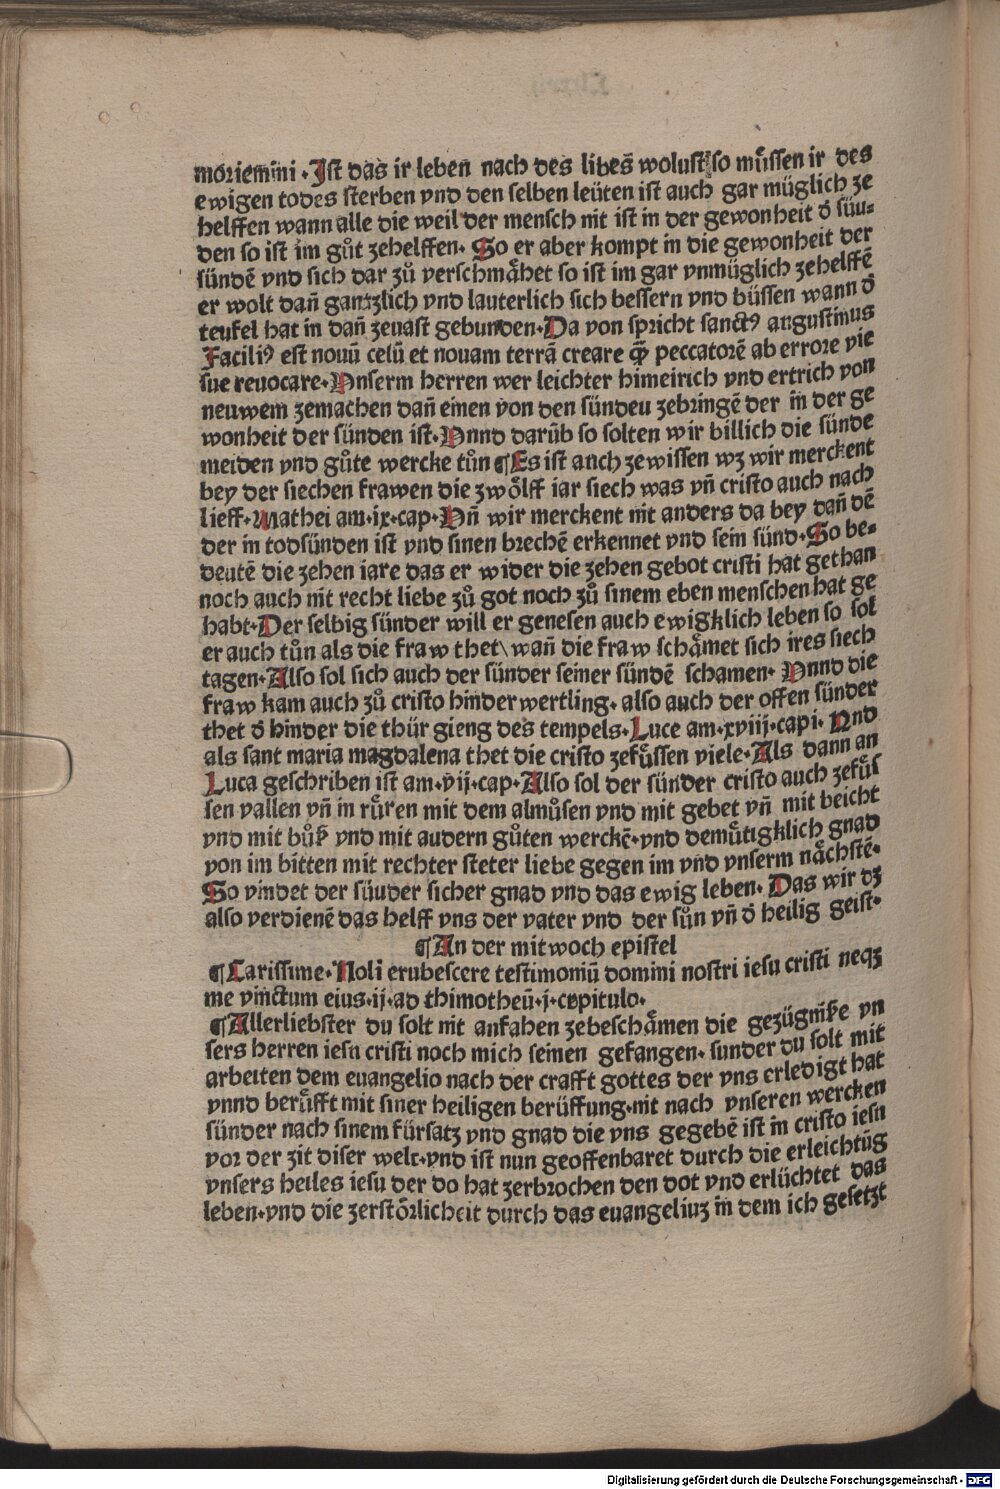 moriemini. Ist das ir leben nach des libes̄ wolust so müssen ir des
ewigen todes sterben vnd den selben leüten ist auch gar müglich ze
helffen wann alle die weil der mensch nit ist in der gewonheit d̄ süu⸗
den so ist im gůt zehelffen. So er aber kompt in die gewonheit der
sündē vnd sich dar zů verschmåhet so ist im gar vnmüglich zehelffē
er wolt dan̄ gantzlich vnd lauterlich sich bessern vnd büssen wann d̄
teufel hat in dan̄ zeuast gebunden. Da von spricht sanctꝰ augustinus
Faciliꝰ est nouū celū et nouam terrā creare q̄ȝ peccatorē ab errore vie
sue reuocare. Vnserm herren wer leichter himelrich vnd ertrich von
neuwem zemachen dan̄ einen von den sündeu zebringē der in der ge
wonheit der sünden ist. Vnnd darūb so solten wir billich die sünde
meiden vnd gůte wercke tůn ¶ Es ist auch zewissen wz wir merckent
bey der siechen frawen die zwölff iar siech was vn̄ cristo auch nach
lieff. Mathei am.ix.cap. Vn̄ wir merckent nit anders da bey dan̄ dē
der in todsünden ist vnd sinen brechē erkennet vnd sein sünd. So be⸗
deutē die zehen iare das er wider die zehen gebot cristi hat gethan
noch auch nit recht liebe zů got noch zů sinem eben menschen hat ge
habt. Der selbig sünder will er genesen auch ewigklich leben so sol
er auch tůn als die fraw thet\ wan̄ die fraw schåmet sich ires siech
tagen. Also sol sich auch der sünder seiner sündē schamen. Vnnd die
fraw kam auch zů cristo hinderwertling. also auch der offen sünder
thet d̄ hinder die thür gieng des tempels. Luce am.xviij.capi. Vnd
als sant maria magdalena thet die cristo zefüssen viele. Als dann an
Luca geschriben ist am.vij.cap. Also sol der sünder cristo auch zefüs
sen vallen vn̄ in rüren mit dem almůsen vnd mit gebet vn̄ mit beicht
vnd mit bůß vnd mit audern gůten werckē. vnd demütigklich gnad
von im bitten mit rechter steter liebe gegen im vnd vnserm nåchstē.
So vindet der süuder sicher gnad vnd das ewig leben. Das wir dz
also verdienē das helff vns der vater vnd der sůn vn̄ d̄ heilig geist.
¶ An der mitwoch epistel
¶ Carissime. Noli erubescere testimoniū domini nostri iesu cristi neqȝ
me vinctum eius.ij.ad thimotheū.j.capitulo.
¶ Allerliebster du solt nit anfahen zebeschåmen die gezügniße vn
sers herren iesu cristi noch mich seinen gefangen. sunder du solt mit
arbeiten dem euangelio nach der crafft gottes der vns erledigt hat
vnnd berüfft mit siner heiligen berüffung. nit nach vnseren wercken
sünder nach sinem fürsatz vnd gnad die vns gegebē ist in cristo iesu
vor der zit diser welt. vnd ist nun geoffenbaret durch die erleichtūg
vnsers heiles iesu der do hat zerbrochen den dot vnd erlüchtet das
leben. vnd die zerstörlicheit durch das euangeliuȝ in dem ich gesetzt
Digitalisierung gefördert durch die Deutsche Forschungsgemeinschaft - DFG